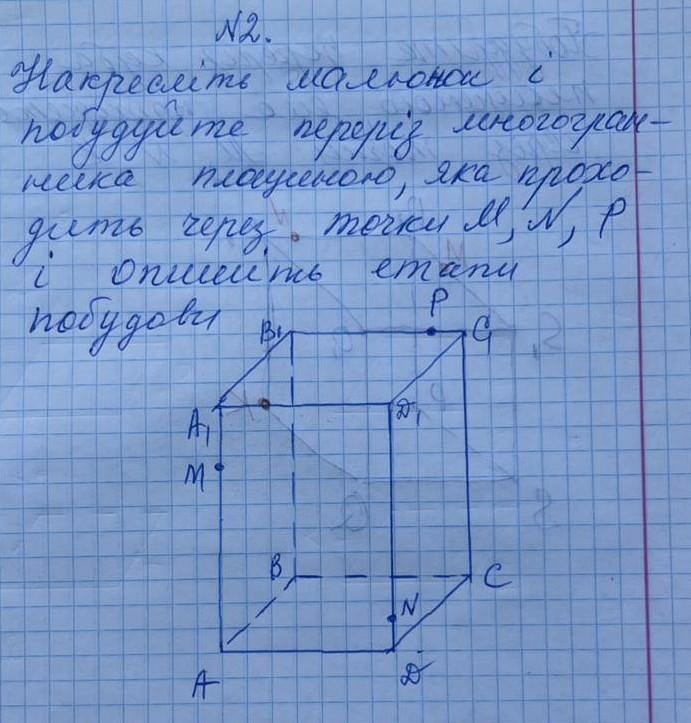 N2.
Накресліть малюнок і
побудуйте переріз многогран-
ника площиною, яка прохо-
дить через точки M, N, P
і опишіть етапи
побудови
P
B₁
C₁
A₁
D₁
M
B
C
N
A
D